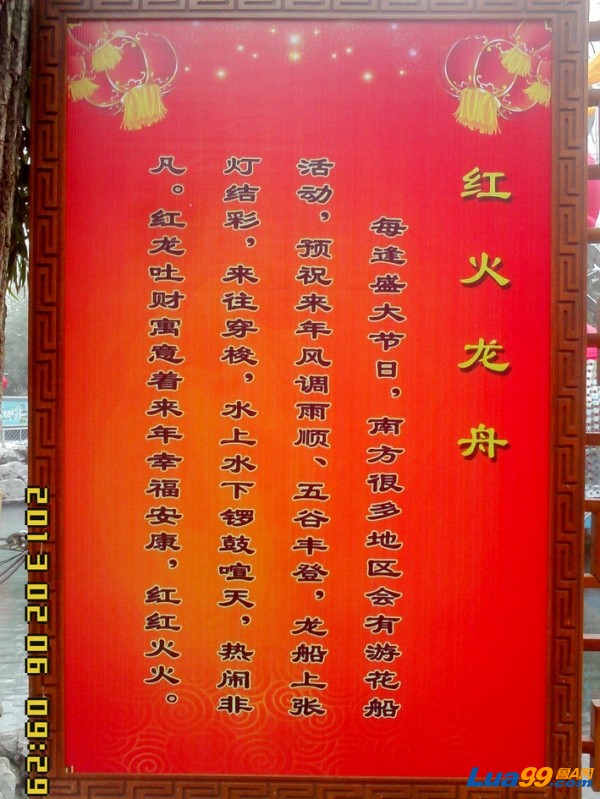 红火龙舟
每逢盛大节日，南方很多地区会有游花船
活动，预祝来年风调雨顺、五谷丰登，龙船上张
灯结彩，来往穿梭，水上水下锣鼓喧天，热闹非
凡。红龙吐财寓意着来年幸福安康，红红火火。
2013 02 06 09:29
Lua99.com
撸A网